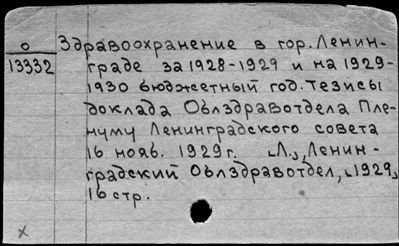 о
13332
Здравоохранение в гор. Ленин-
граде за 1928-1929 и на 1929-
1930 бюджетный год. Тезисы
доклада Облздравотдела Пле-
нуму Ленинградского совета
16 нояб. 1929 г. [Л.], Ленин-
градский Облздравотдел, [1929],
16 стр.
х